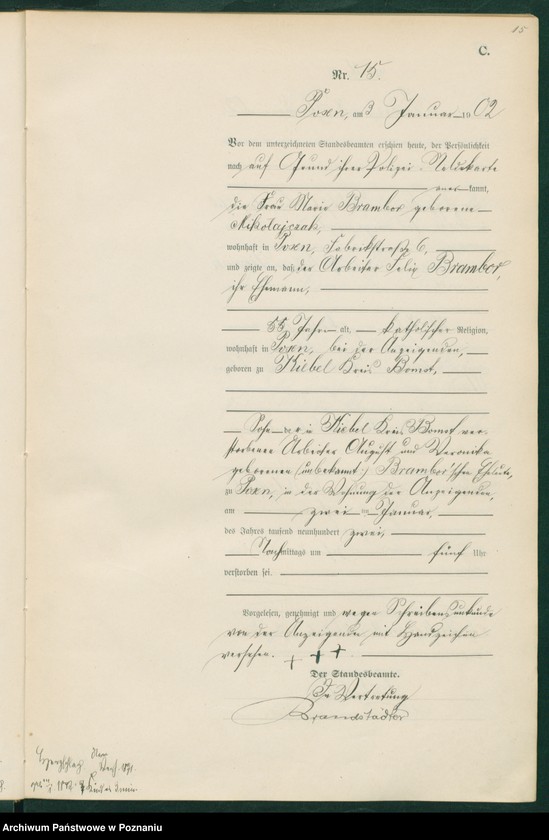 15
C.
Nr. 15.
Posen, am 3 Januar 1902
Vor dem unterzeichneten Standesbeamten erschien heute, der Persönlichkeit
nach auf Grund ihrer Polizei-Meldekarte
anerkannt,
die Frau Marie Brambor geborene
Mikołajczak,
wohnhaft in Posen, Fabrikstraße 6,
und zeigte an, daß der Arbeiter Felix Brambor,
ihr Ehemann,
55 Jahre alt, katholischer Religion,
wohnhaft in Posen, bei der Anzeigenden,
geboren zu Kiebel Kreis Bomst,
Sohn der in Kiebel Kreis Bomst ver-
storbenen Arbeiter August und Veronika
geborenen (unbekannt) Brambor'schen Eheleute,
zu Posen, in der Wohnung der Anzeigenden,
am zwei ten Januar,
des Jahres tausend neunhundert zwei,
Nachmittags um fünf Uhr
verstorben sei.
Vorgelesen, genehmigt und wegen Schreibensunkunde
von der Anzeigenden mit Handzeichen
versehen. + + +
Der Standesbeamte.
In Vertretung
Brandstädter
Archiwum Państwowe w Poznaniu